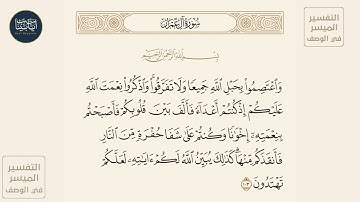 سُورَةُ آلِ عِمْرَانَ
التفسير
الميسر
في الوصف
بِسْمِ اللَّهِ الرَّحْمَٰنِ الرَّحِيمِ
وَاعْتَصِمُوا بِحَبْلِ اللَّهِ جَمِيعًا وَلَا تَفَرَّقُوا وَاذْكُرُوا نِعْمَتَ اللَّهِ
عَلَيْكُمْ إِذْ كُنتُمْ أَعْدَاءً فَأَلَّفَ بَيْنَ قُلُوبِكُمْ فَأَصْبَحْتُم
بِنِعْمَتِهِ إِخْوَانًا وَكُنتُمْ عَلَىٰ شَفَا حُفْرَةٍ مِّنَ النَّارِ
فَأَنقَذَكُم مِّنْهَا كَذَٰلِكَ يُبَيِّنُ اللَّهُ لَكُمْ آيَاتِهِ لَعَلَّكُمْ
تَهْتَدُونَ ١٠٣
التفسير
الميسر
في الوصف